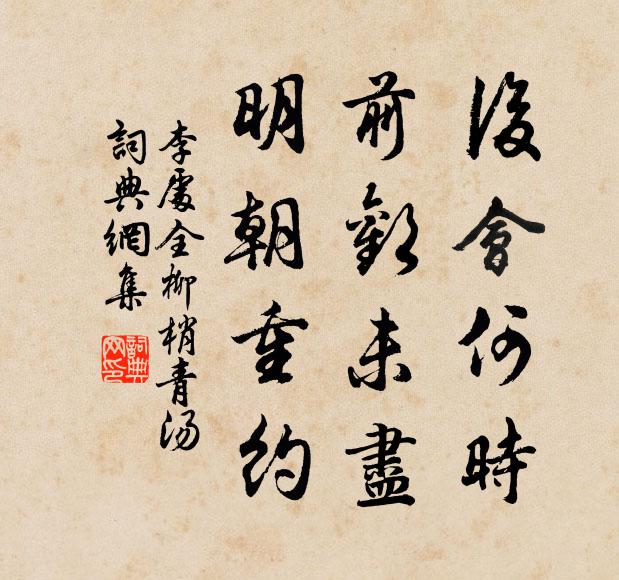 後會何時
前歡未盡
明朝重約
李處全柳梢青汤
詞典網集
詞典
网印